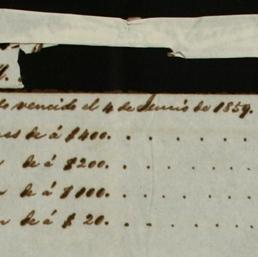 vencido el 4 de Junio de 1859.
de á $400. . . . . . .
de á $200. . . . . . .
de á $100. . . . . . .
de á $20. . . . . . .